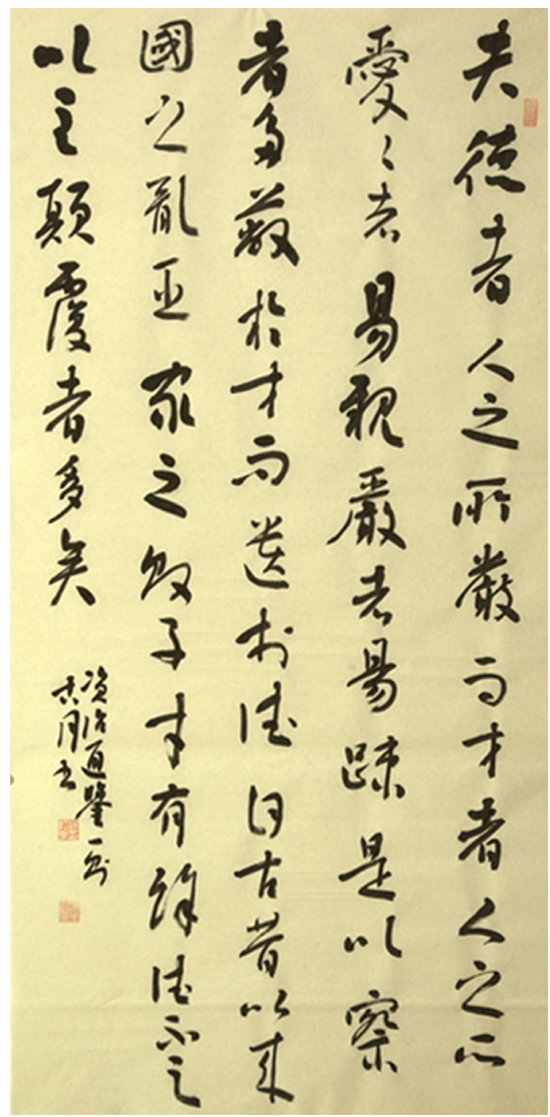 夫德者人之所嚴而才者人之所
愛々者易親嚴者易踈是以察
者多蔽於才而遺於德自古昔以來
國之亂臣家之敗子才有餘德不足
以至顛覆者多矣
資治通鑒一則
月书